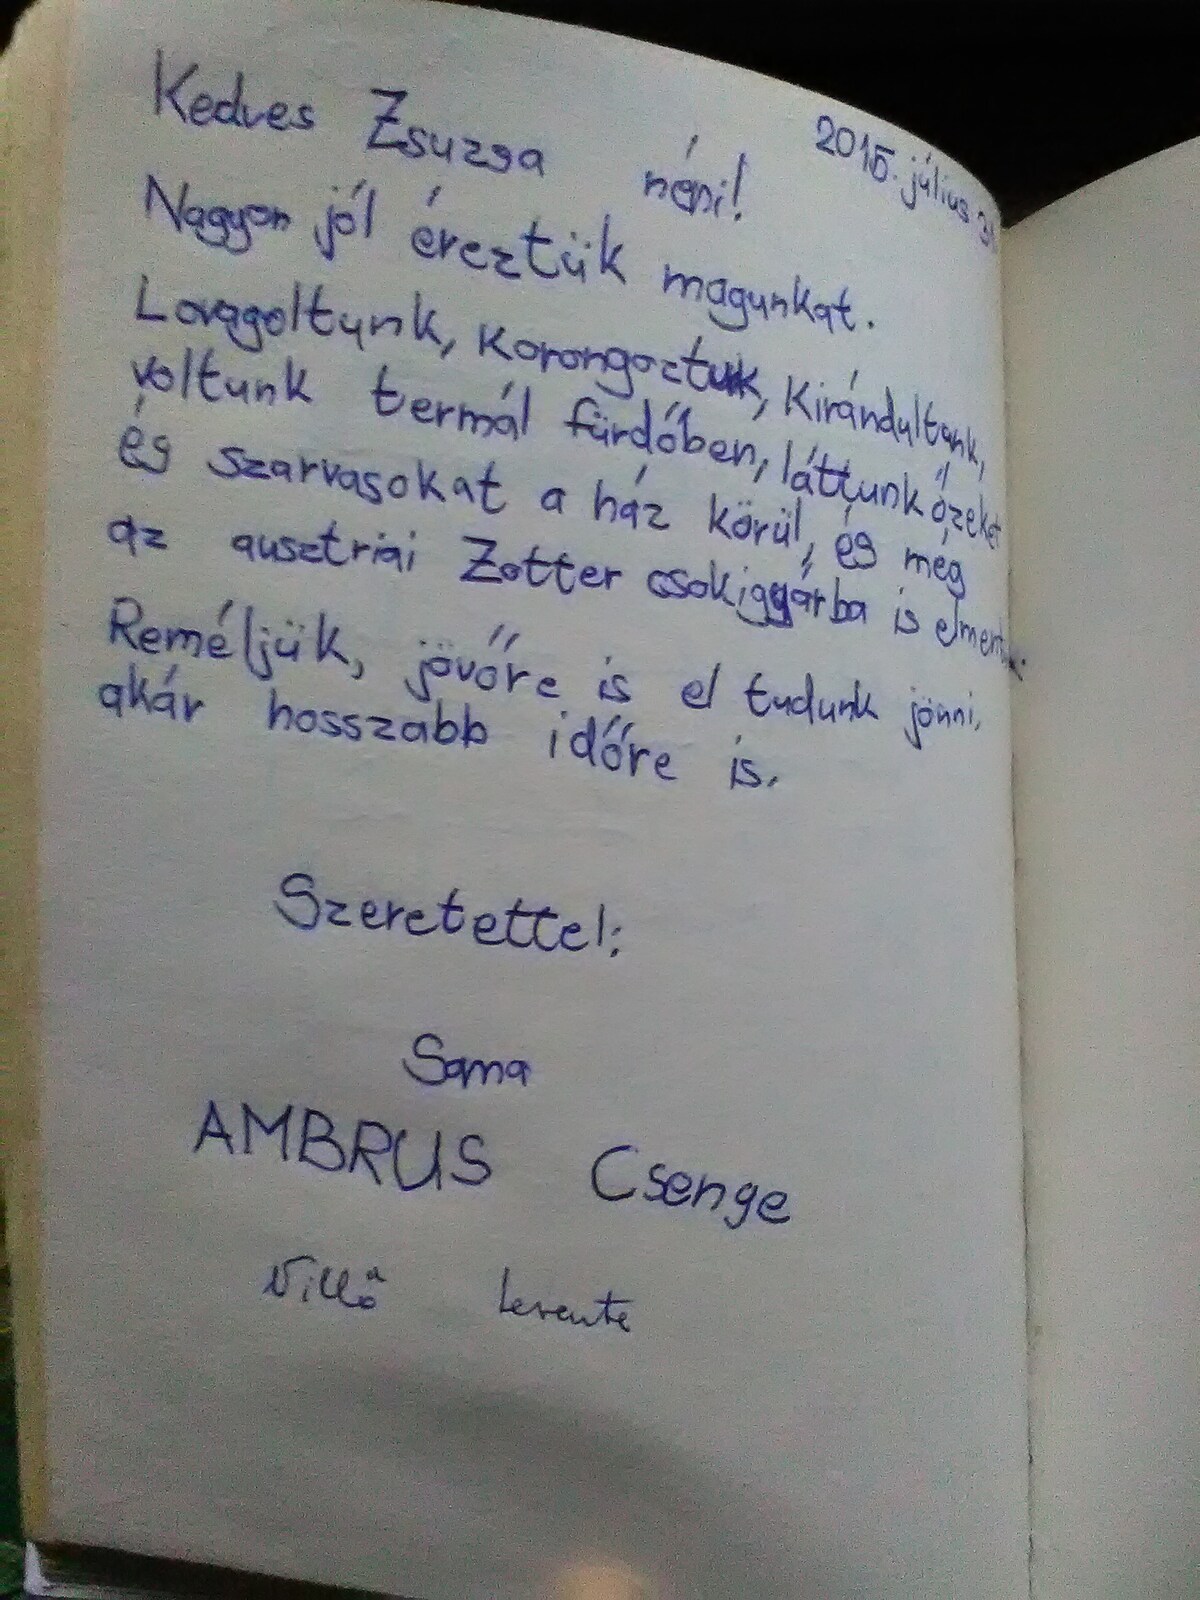 2015. július 31
Kedves Zsuzsa néni!
Nagyon jól éreztük magunkat.
Lovagoltunk, korongoztunk, kirándultunk,
voltunk termál fürdőben, láttunk őzeket
és szarvasokat a ház körül, és még
az ausztriai Zotter csokigyárba is elmentünk.
Reméljük, jövőre is el tudunk jönni,
akár hosszabb időre is.
Szeretettel:
Soma
AMBRUS Csenge
Villő Levente